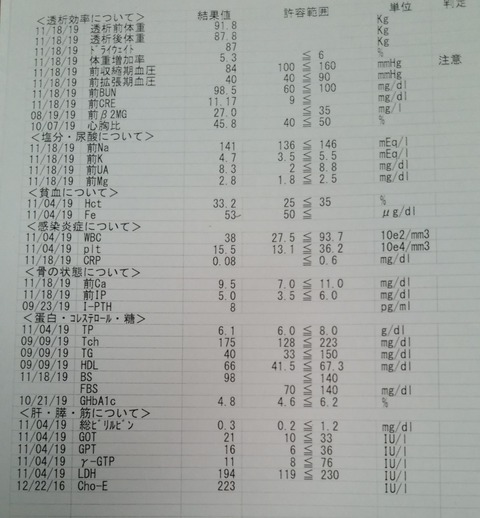 結果値 許容範囲 単位 判定
＜透析効率について＞
11/18/19 透析前体重 91.8 Kg
11/18/19 透析後体重 87.8 Kg
11/18/19 ﾄﾞﾗｲｳｪｲﾄ 87 Kg
11/18/19 体重増加率 5.3 ≦ 6 %
11/18/19 前収縮期血圧 84 100 ≦ 160 mmHg 注意
11/18/19 前拡張期血圧 40 40 ≦ 90 mmHg
11/18/19 前BUN 98.5 60 ≦ 100 mg/dl
11/18/19 前CRE 11.17 9 ≦ mg/dl
08/19/19 前β2MG 27.0 ≦ 35 mg/l
10/07/19 心胸比 45.8 40 ≦ 50 %
＜塩分・尿酸について＞
11/18/19 前Na 141 136 ≦ 146 mEq/l
11/18/19 前K 4.7 3.5 ≦ 5.5 mEq/l
11/18/19 前UA 8.3 2 ≦ 8.8 mg/dl
11/18/19 前Mg 2.8 1.8 ≦ 2.5 mg/dl
＜貧血について＞
11/04/19 Hct 33.2 25 ≦ 35 %
11/04/19 Fe 53 50 ≦ μg/dl
＜感染炎症について＞
11/04/19 WBC 38 27.5 ≦ 93.7 10e2/mm3
11/04/19 plt 15.5 13.1 ≦ 36.2 10e4/mm3
11/18/19 CRP 0.08 ≦ 0.6 mg/dl
＜骨の状態について＞
11/18/19 前Ca 9.5 7.0 ≦ 11.0 mg/dl
11/18/19 前IP 5.0 3.5 ≦ 6.0 mg/dl
09/23/19 I-PTH 8 pg/ml
＜蛋白・ｺﾚｽﾃﾛｰﾙ・糖＞
11/04/19 TP 6.1 6.0 ≦ 8.0 g/dl
09/09/19 Tch 175 128 ≦ 223 mg/dl
09/09/19 TG 40 33 ≦ 150 mg/dl
09/09/19 HDL 66 41.5 ≦ 67.3 mg/dl
11/18/19 BS 98 ≦ 140
FBS 70 ≦ 140 mg/dl
10/21/19 GHbA1c 4.8 4.6 ≦ 6.2 %
＜肝・膵・筋について＞
11/04/19 総ﾋﾞﾘﾙﾋﾞﾝ 0.3 0.2 ≦ 1.2 mg/dl
11/04/19 GOT 21 10 ≦ 33 IU/l
11/04/19 GPT 16 6 ≦ 36 IU/l
11/04/19 γ-GTP 11 8 ≦ 76 IU/l
11/04/19 LDH 194 119 ≦ 230 IU/l
12/22/16 Cho-E 223 IU/l